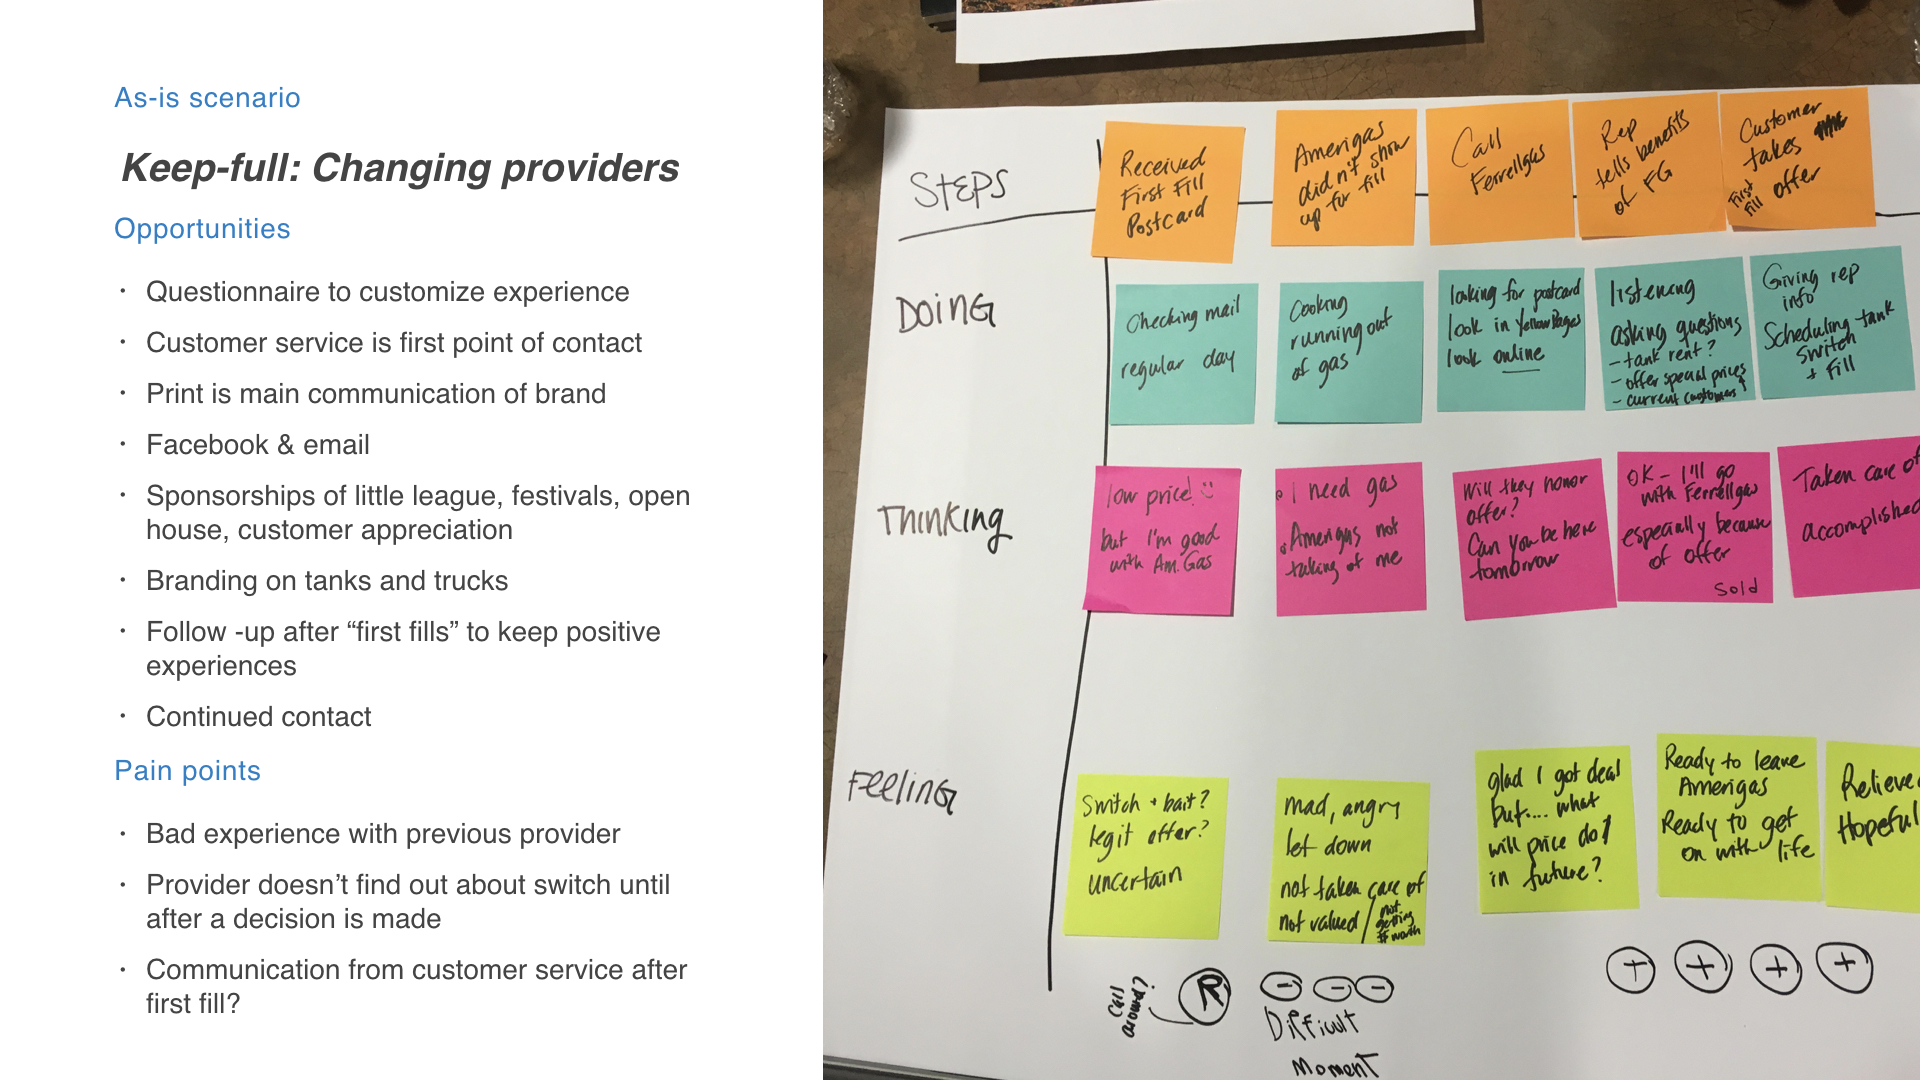 As-is scenario
Keep-full: Changing providers
Opportunities
· Questionnaire to customize experience
· Customer service is first point of contact
· Print is main communication of brand
· Facebook & email
· Sponsorships of little league, festivals, open
house, customer appreciation
· Branding on tanks and trucks
· Follow -up after “first fills” to keep positive
experiences
· Continued contact
Pain points
· Bad experience with previous provider
· Provider doesn’t find out about switch until
after a decision is made
· Communication from customer service after
first fill?
STEPS
Received
First Fill
Postcard
Amerigas
didn't show
up for fill
Call
Ferrellgas
Rep
tells benefits
of FG
Customer
takes
First Fill offer
DOING
Checking mail
regular day
Cooking
running out
of gas
looking for postcard
look in Yellow Pages
look online
listening
asking questions
- tank rent?
- offer special prices
- current customers
Giving rep
info
Scheduling tank
switch
+ fill
Thinking
low price!
but I'm good
with Am. Gas
I need gas
Amerigas not
taking of me
Will they honor
offer?
Can you be here
tomorrow
OK - I'll go
with Ferrellgas
especially because
of offer
Sold
Taken care of
accomplished
Feeling
Switch + bait?
legit offer?
uncertain
mad, angry
let down
not taken care of
not valued / not
getting
$ worth
glad I got deal
but.... what
will price do
in future?
Ready to leave
Amerigas
Ready to get
on with life
Relieve
Hopeful
Call
around?
R
- - -
+ + + +
Difficult
Moment